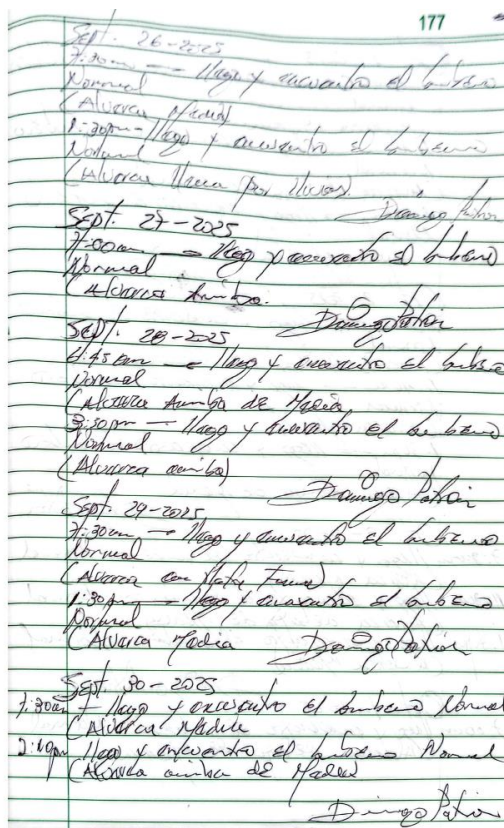 177
Sept. 26-2025
7:30am — llego y encuentro el bombeo
Normal
(Alverca Media)
1:30pm - llego y encuentro el bombeo
Normal
(Alverca llena (por lluvias).
Domingo Patron
Sept. 27-2025
7:00am — llego y encuentro el bombeo
Normal
(Alverca Arriba.
Domingo Patron
Sept. 28-2025
6:45am — llego y encuentro el bombeo
Normal
(Alverca Arriba de Media
3:30pm — llego y encuentro el bombeo
Normal
(Alverca arriba)
Domingo Patron
Sept. 29-2025
7:30am — llego y encuentro el bombeo
Normal
(Alverca con
1:30pm — llego y encuentro el bombeo
Normal
(Alverca Media
Domingo Patron
Sept. 30-2025
7:30am — llego y encuentro el bombeo Normal
(Alverca Media
llego y encuentro el bombeo Normal
(Alverca arriba de Media
Domingo Patron